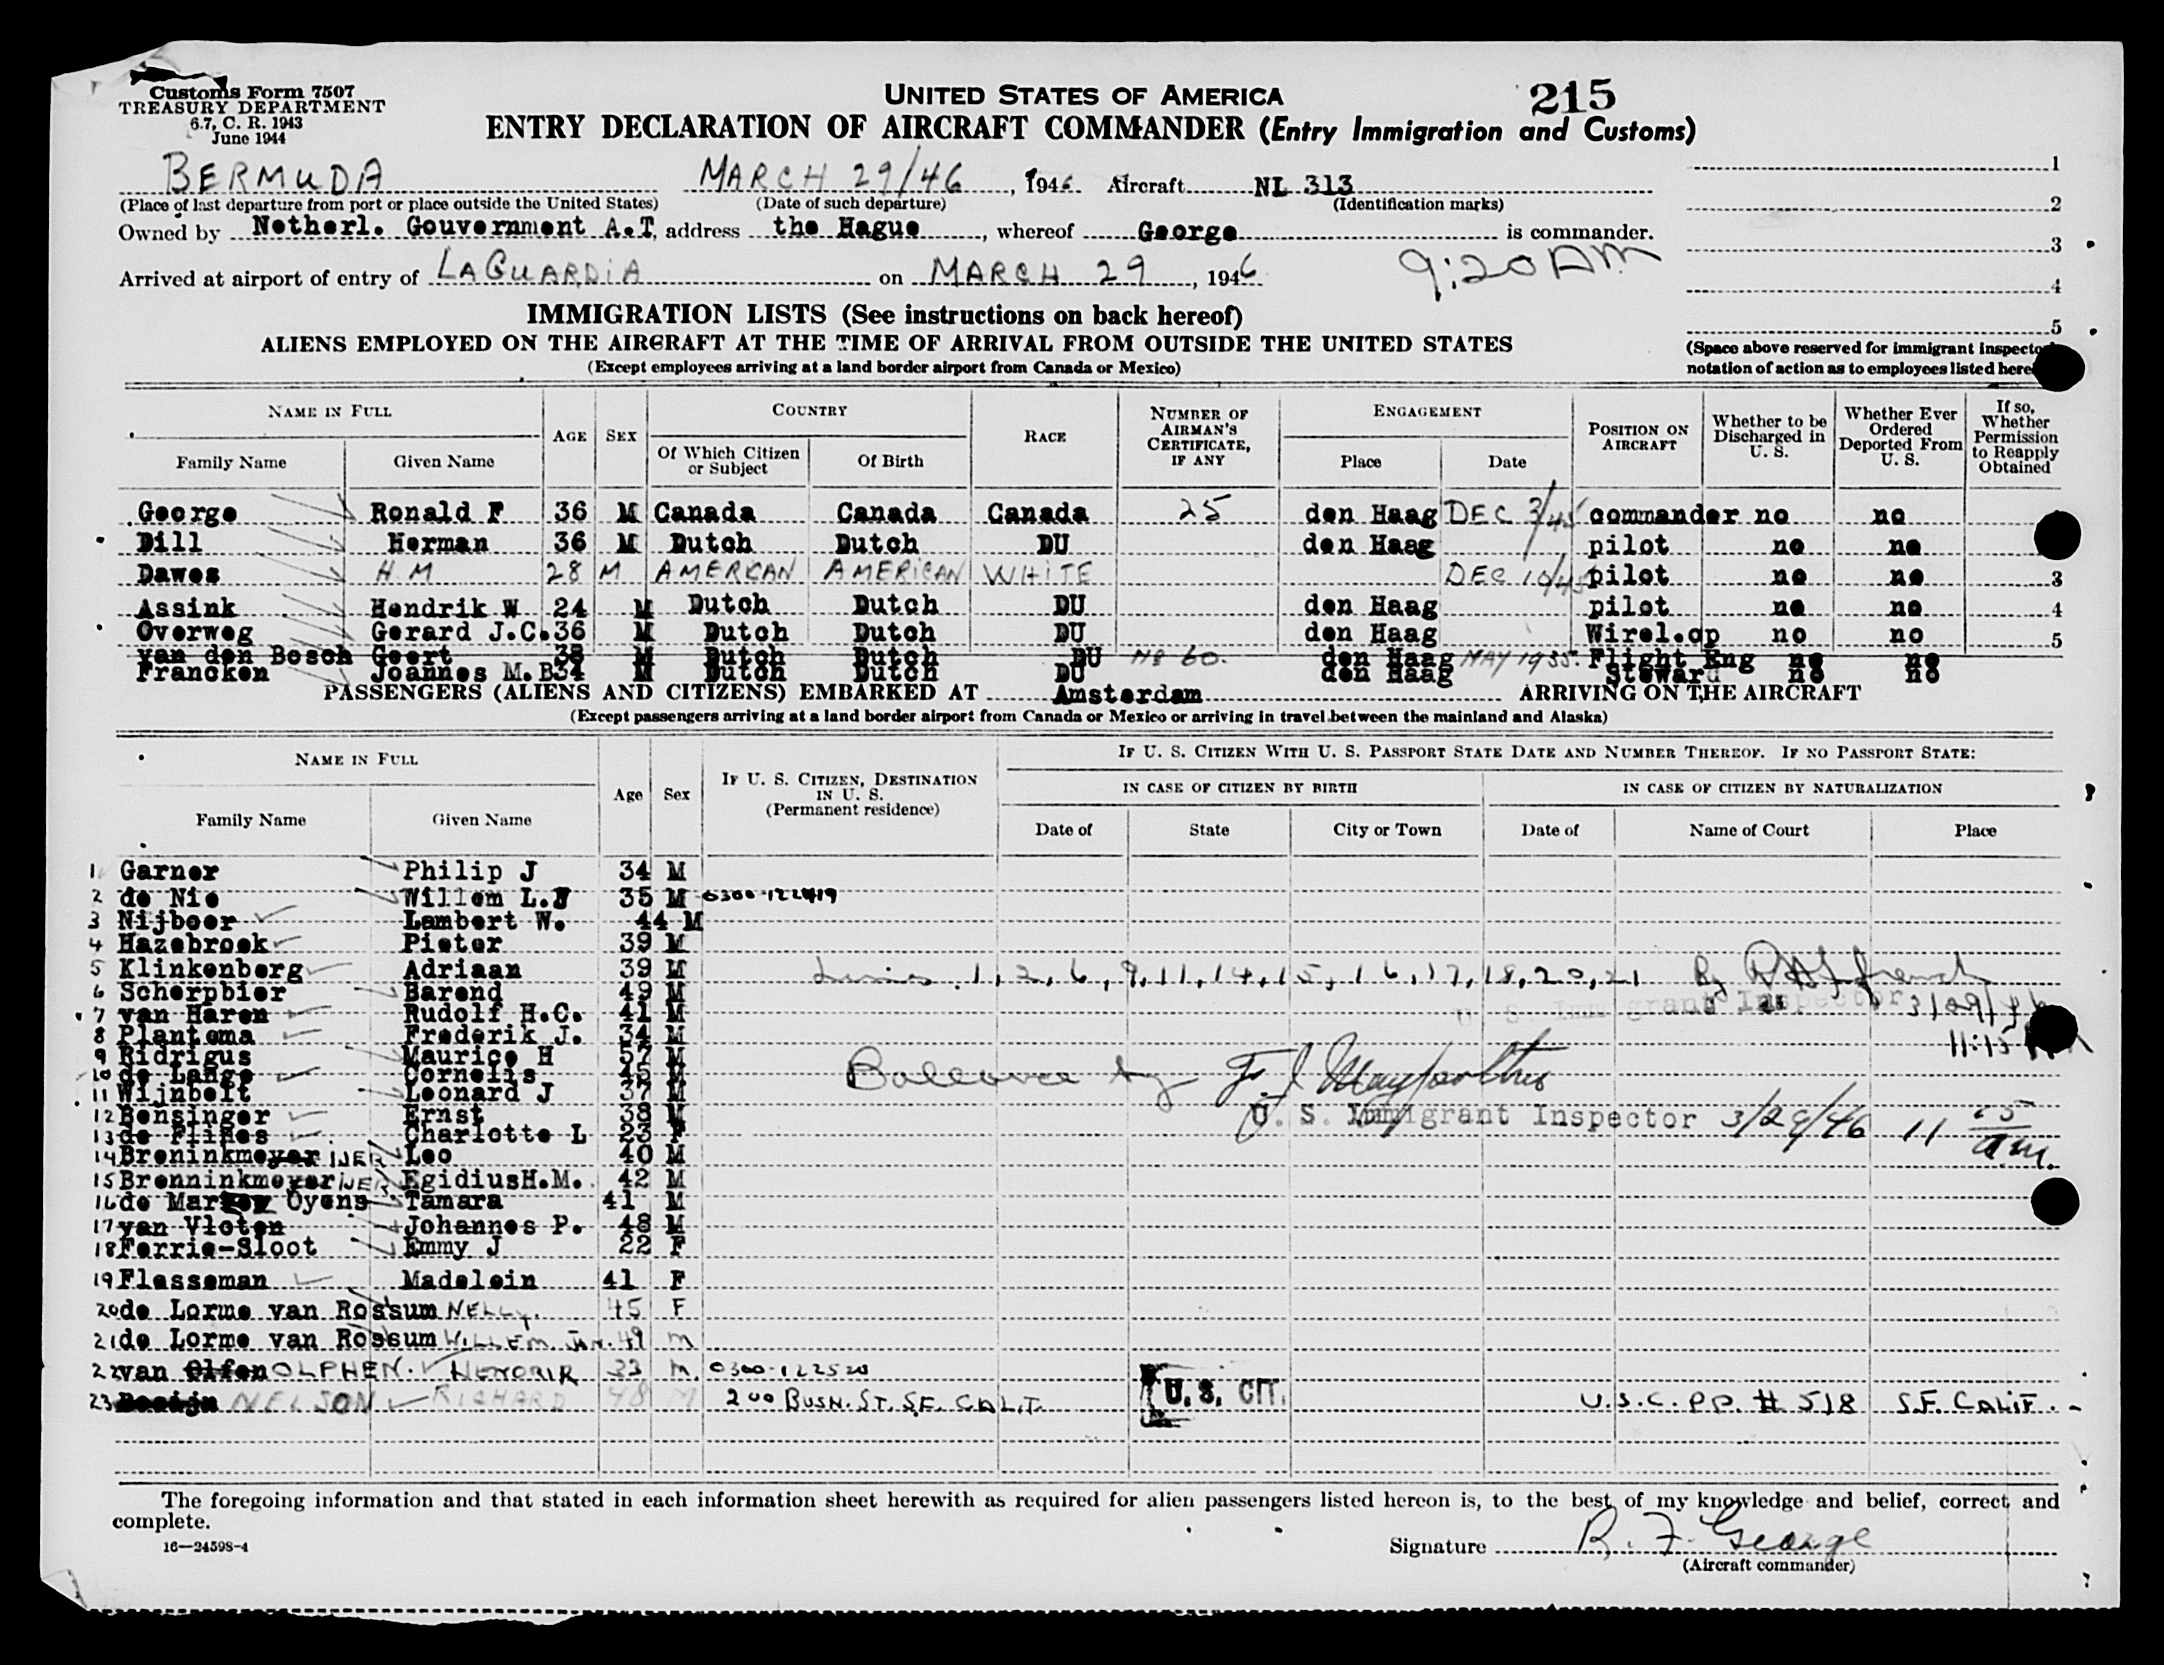 Customs Form 7507
TREASURY DEPARTMENT
6.7, C. R. 1943
June 1944
UNITED STATES OF AMERICA
215
ENTRY DECLARATION OF AIRCRAFT COMMANDER (Entry Immigration and Customs)
BERMUDA MARCH 29/46, 1946 Aircraft NL 313
(Place of last departure from port or place outside the United States) (Date of such departure) (Identification marks)
Owned by Netherl. Gouvernment A.T, address the Hague, whereof George is commander.
Arrived at airport of entry of LAGUARDIA on MARCH 29, 1946 9:20 AM
1
2
3
4
5
IMMIGRATION LISTS (See instructions on back hereof)
ALIENS EMPLOYED ON THE AIRCRAFT AT THE TIME OF ARRIVAL FROM OUTSIDE THE UNITED STATES
(Except employees arriving at a land border airport from Canada or Mexico)
(Space above reserved for immigrant
notation of action as to employees listed
NAME IN FULL AGE SEX COUNTRY RACE NUMBER OF AIRMAN'S CERTIFICATE, IF ANY ENGAGEMENT POSITION ON AIRCRAFT Whether to be Discharged in U. S. Whether Ever Ordered Deported From U. S. If so, Whether Permission to Reapply Obtained
Family Name Given Name Of Which Citizen or Subject Of Birth Place Date
George Ronald F 36 M Canada Canada Canada 25 den Haag DEC 3/45 commander no no
Dill Herman 36 M Dutch Dutch DU den Haag pilot no no
Dawes H M 28 M AMERICAN AMERICAN WHITE DEC 10/45 pilot no no 3
Assink Hendrik W 24 M Dutch Dutch DU den Haag pilot no no 4
Overweg Gerard J.C. 36 M Dutch Dutch DU den Haag Wirel.op no no 5
van den Bosch Geert 38 M Dutch Dutch DU No 60. den Haag MAY 1935. Flight Eng no no
Francken Joannes M.B 34 M Dutch Dutch DU den Haag Steward no no
PASSENGERS (ALIENS AND CITIZENS) EMBARKED AT Amsterdam ARRIVING ON THE AIRCRAFT
(Except passengers arriving at a land border airport from Canada or Mexico or arriving in travel between the mainland and Alaska)
NAME IN FULL Age Sex IF U. S. CITIZEN, DESTINATION IN U. S. (Permanent residence) IF U. S. CITIZEN WITH U. S. PASSPORT STATE DATE AND NUMBER THEREOF. IF NO PASSPORT STATE:
IN CASE OF CITIZEN BY BIRTH IN CASE OF CITIZEN BY NATURALIZATION
Family Name Given Name Date of State City or Town Date of Name of Court Place
1 Garner Philip J 34 M
2 de Nie Willem L.F 35 M 0300-122419
3 Nijboer Lambert W. 44 M
4 Hazebroek Pieter 39 M
5 Klinkenberg Adriaan 39 M Lines 1, 2, 6, 9, 11, 14, 15, 16, 17, 18, 20, 21 By
6 Scherpbier Barend 49 M U. S. Immigrant Inspector 3/29/46
7 van Haren Rudolf H.C. 41 M
8 Plantema Frederik J. 34 M 11:15 AM
9 Ridrigus Maurice H 57 M
10 de Lange Cornelis 45 M Ballance by F. J.
11 Wijnbelt Leonard J 37 M
12 Bensinger Ernst 38 M U. S. Immigrant Inspector 3/29/46 11 15 a.m.
13 de Flines Charlotte L 23 F
14 Breninkmeyer IJER Leo 40 M
15 Brenninkmeyer IJER Egidius H.M. 42 M
16 de Marez Oyens Tamara 41 M
17 van Vloten Johannes P. 48 M
18 Ferrie-Sloot Emmy J 22 F
19 Flesseman Madelein 41 F
20 de Lorme van Rossum NELLY. 45 F
21 de Lorme van Rossum WILLEM. Jan. 49 M
22 van Olfen OLPHEN. HENDRIK 33 M. 0300-122520
23 NELSON RICHARD 48 M 200 BUSH. ST. S.F. CALIF. U.S. CIT. U.S.C. PP. # 518 S.F. CALIF.
The foregoing information and that stated in each information sheet herewith as required for alien passengers listed hereon is, to the best of my knowledge and belief, correct and
complete.
16—24598-4
Signature R. F. George
(Aircraft commander)